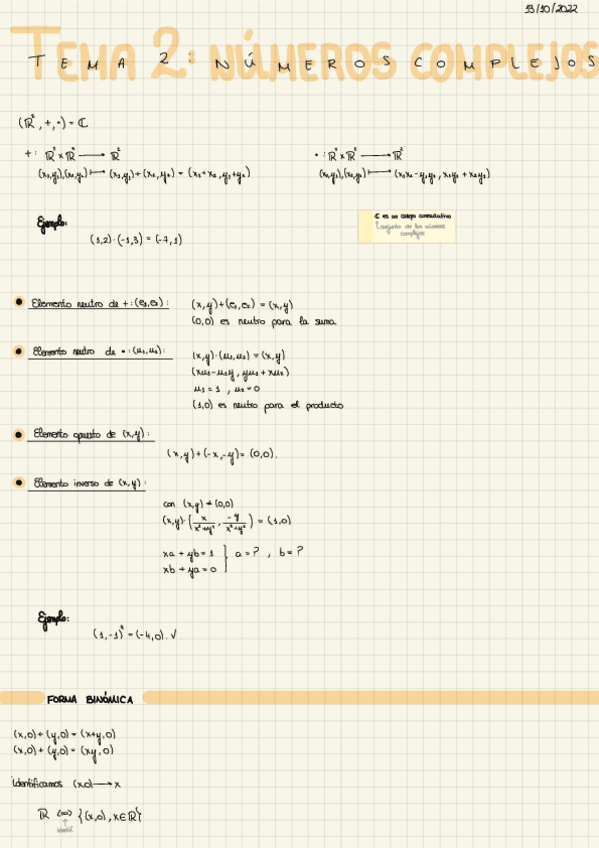 13/10/2022
TEMA 2: NÚMEROS COMPLEJOS
(ℝ², +, ·) = ℂ
+: ℝ² × ℝ² ⟶ ℝ²
(x₁,y₁),(x₂,y₂) ⟼ (x₁,y₁)+(x₂,y₂) = (x₁+x₂, y₁+y₂)
·: ℝ² × ℝ² ⟶ ℝ²
(x₁,y₁),(x₂,y₂) ⟼ (x₁x₂ - y₁y₂, x₁y₂ + x₂y₁)
ℂ es un cuerpo conmutativo
conjunto de los números
complejos
Ejemplo:
(1,2)·(-1,3) = (-7,1)
Elemento neutro de +: (e₁,e₂):
(x,y)+(e₁,e₂) = (x,y)
(0,0) es neutro para la suma
Elemento neutro de ·: (u₁,u₂):
(x,y)·(u₁,u₂) = (x,y)
(xu₁-u₂y, yu₁+xu₂)
u₁ = 1 , u₂ = 0
(1,0) es neutro para el producto
Elemento opuesto de (x,y):
(x,y)+(-x,-y) = (0,0).
Elemento inverso de (x,y):
con (x,y) ≠ (0,0)
(x,y)·(x/(x²+y²), -y/(x²+y²)) = (1,0)
xa + yb = 1 } a = ? , b = ?
xb + ya = 0
Ejemplo:
(1,-1)⁴ = (-4,0). √
FORMA BINÓMICA
(x,0)+(y,0) = (x+y,0)
(x,0)+(y,0) = (xy,0)
identificamos (x,0) ⟶ x
ℝ ⟺ {(x,0), x∈ℝ}